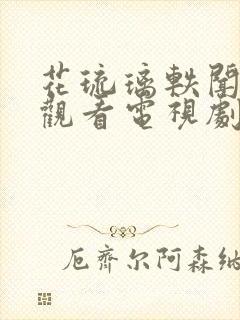 花琉璃軼聞
觀看電視劇
厄齊尔阿森納